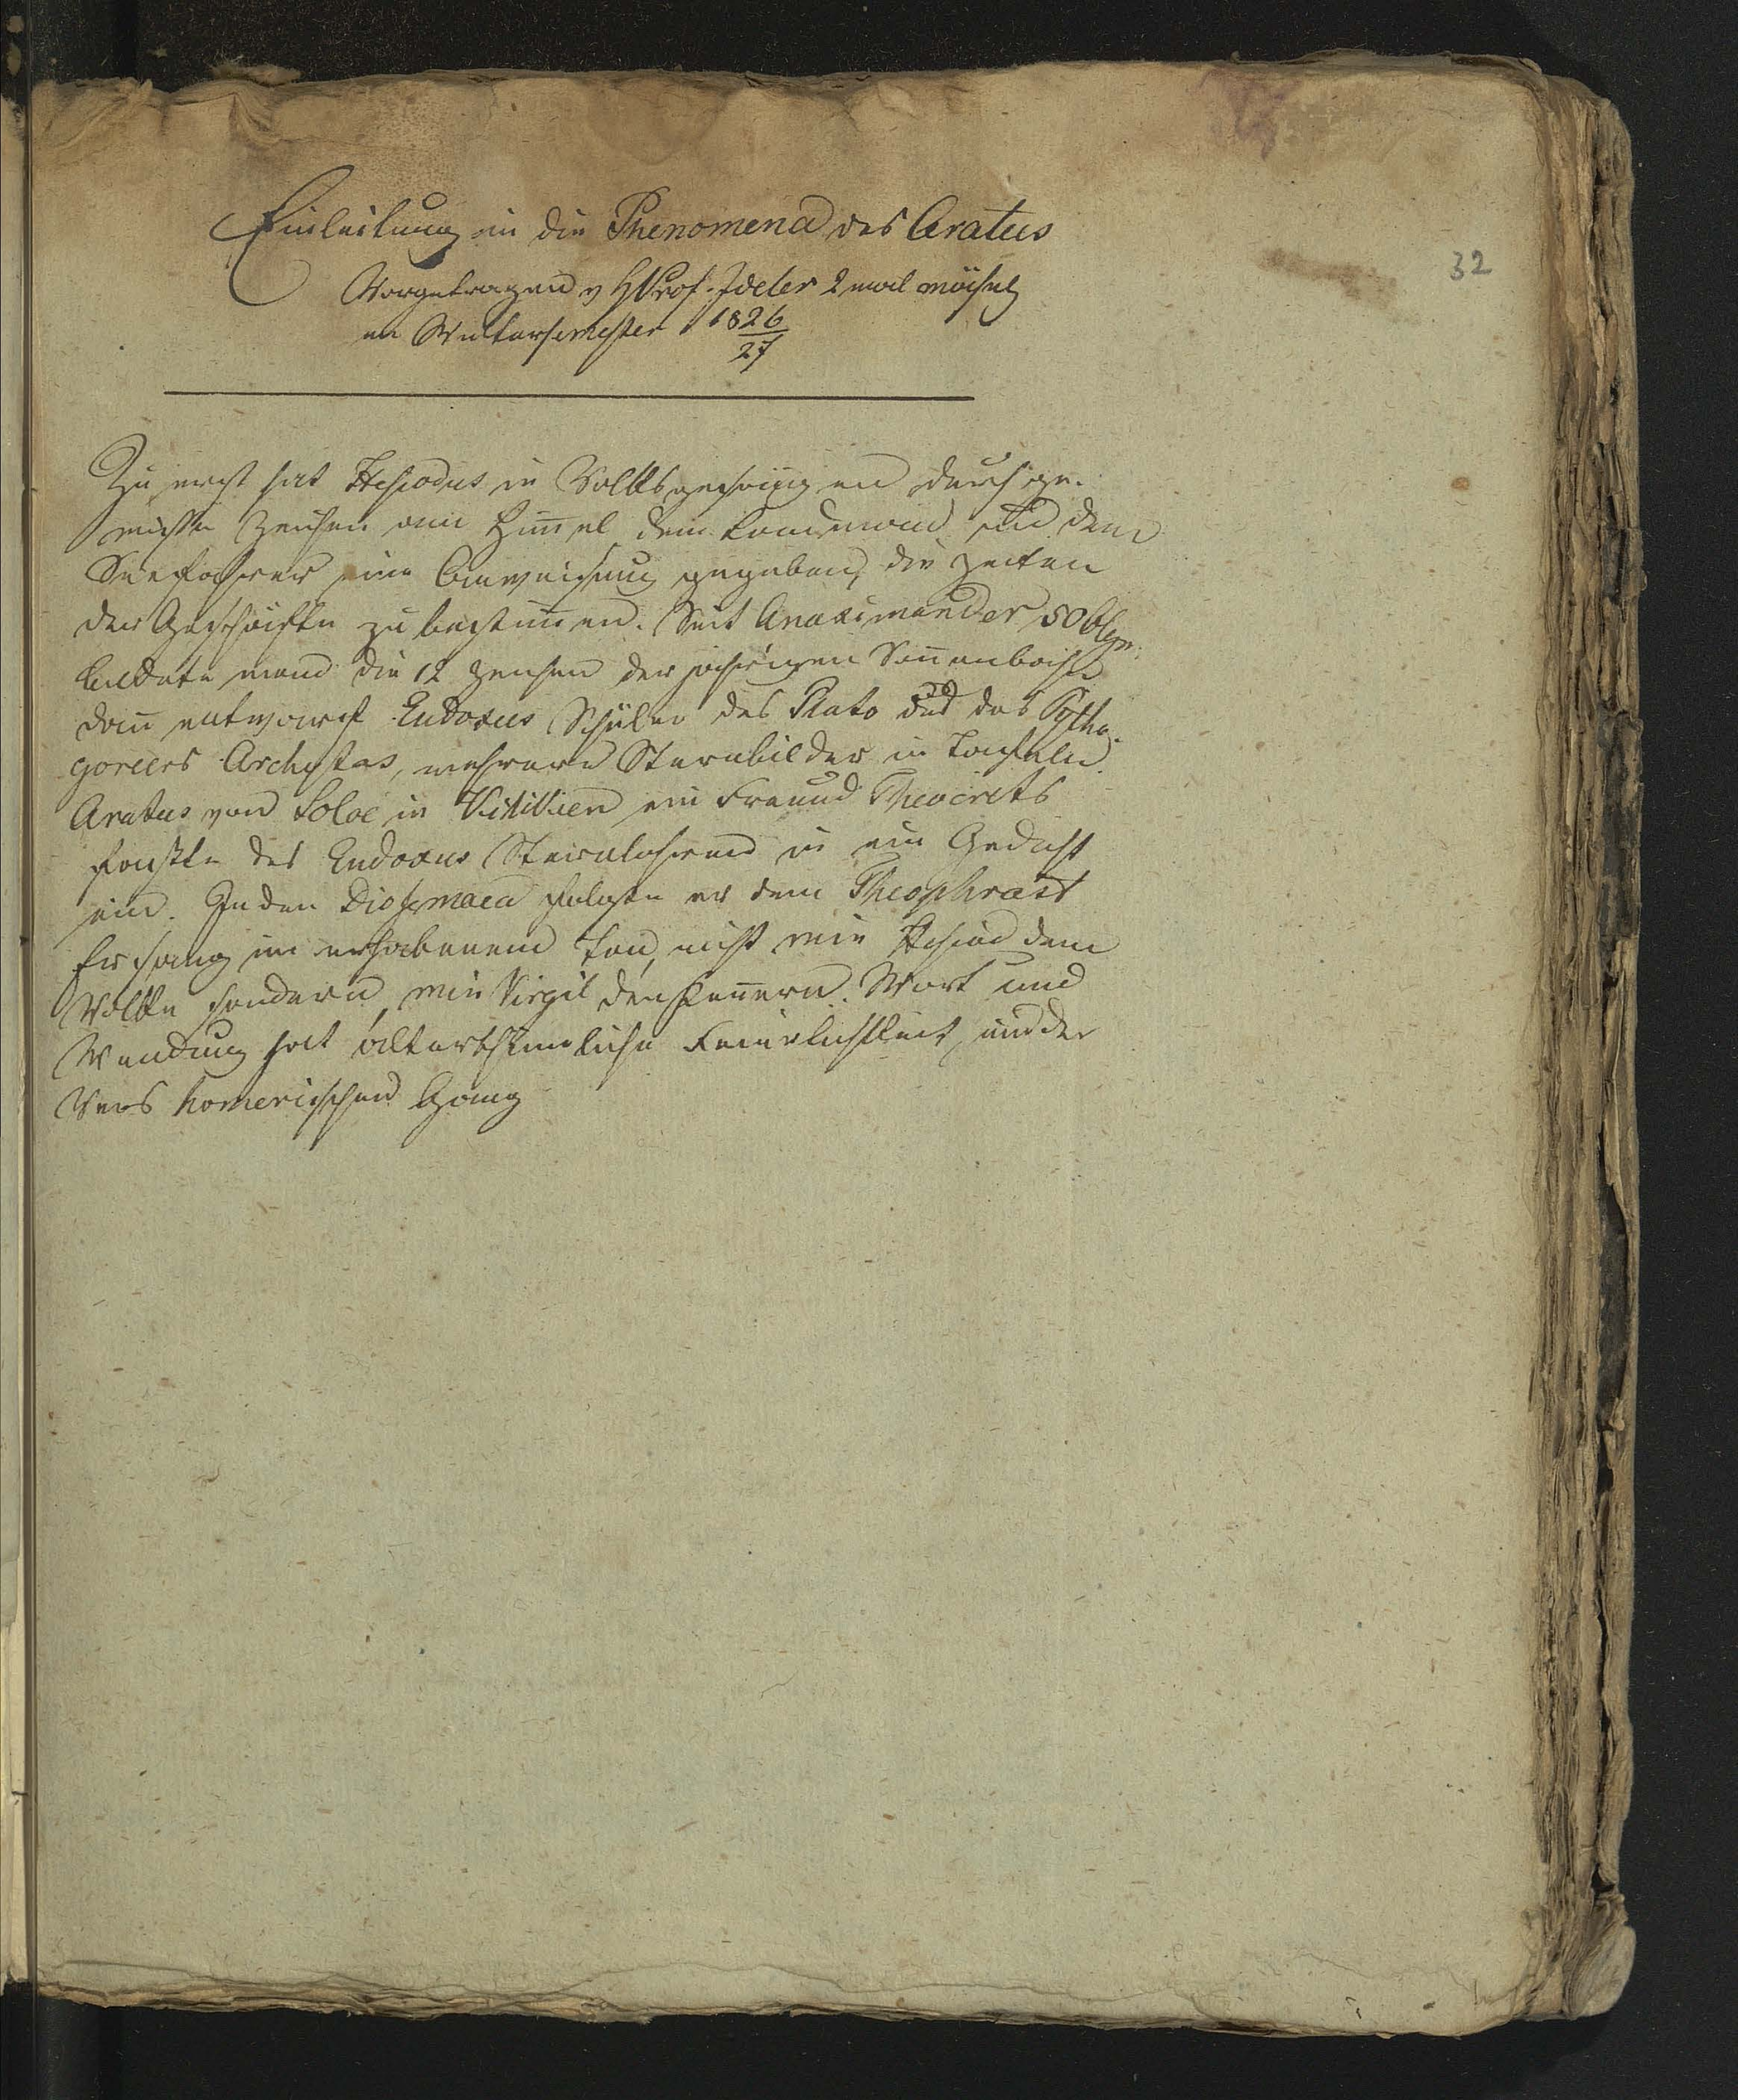 Einleitung in die Phenomena des Aratus
32
Vorgetragen v H Prof. Ideler 2 mal wöchentl
im Wintersemester 1826/27
Zu erst hat Hesiodus in Volksgesängen durch ge-
wisse Zeichen am Him̅el dem Landmann und dem
Seefahrer eine Anweisung gegeben, die Zeiten
der Geschäfte zu bestim̅en. Seit Anaximander 50 Olym.
bildete man die 12 Zeichen der jährigen Son̅enbahn
dan̅ entwarf Eudoxus Schüler des Plato und des Pytha-
goreers Archytas, mehrere Sternbilder in Tafeln.
Aratus von Soloe in Kilikien ein Freund Theocrits
faßte des Eudoxus Sternlehren in ein Gedicht
ein. In den Diosemaea folgte er dem Theophrast
Er sang im erhabenem Ton, nicht wie Hesiod dem
Volke sondern, wie Virgil den Ken̅ern. Wort und
Wendung hat alterthümliche Feierlichkeit, und der
Vers homerischen Gang